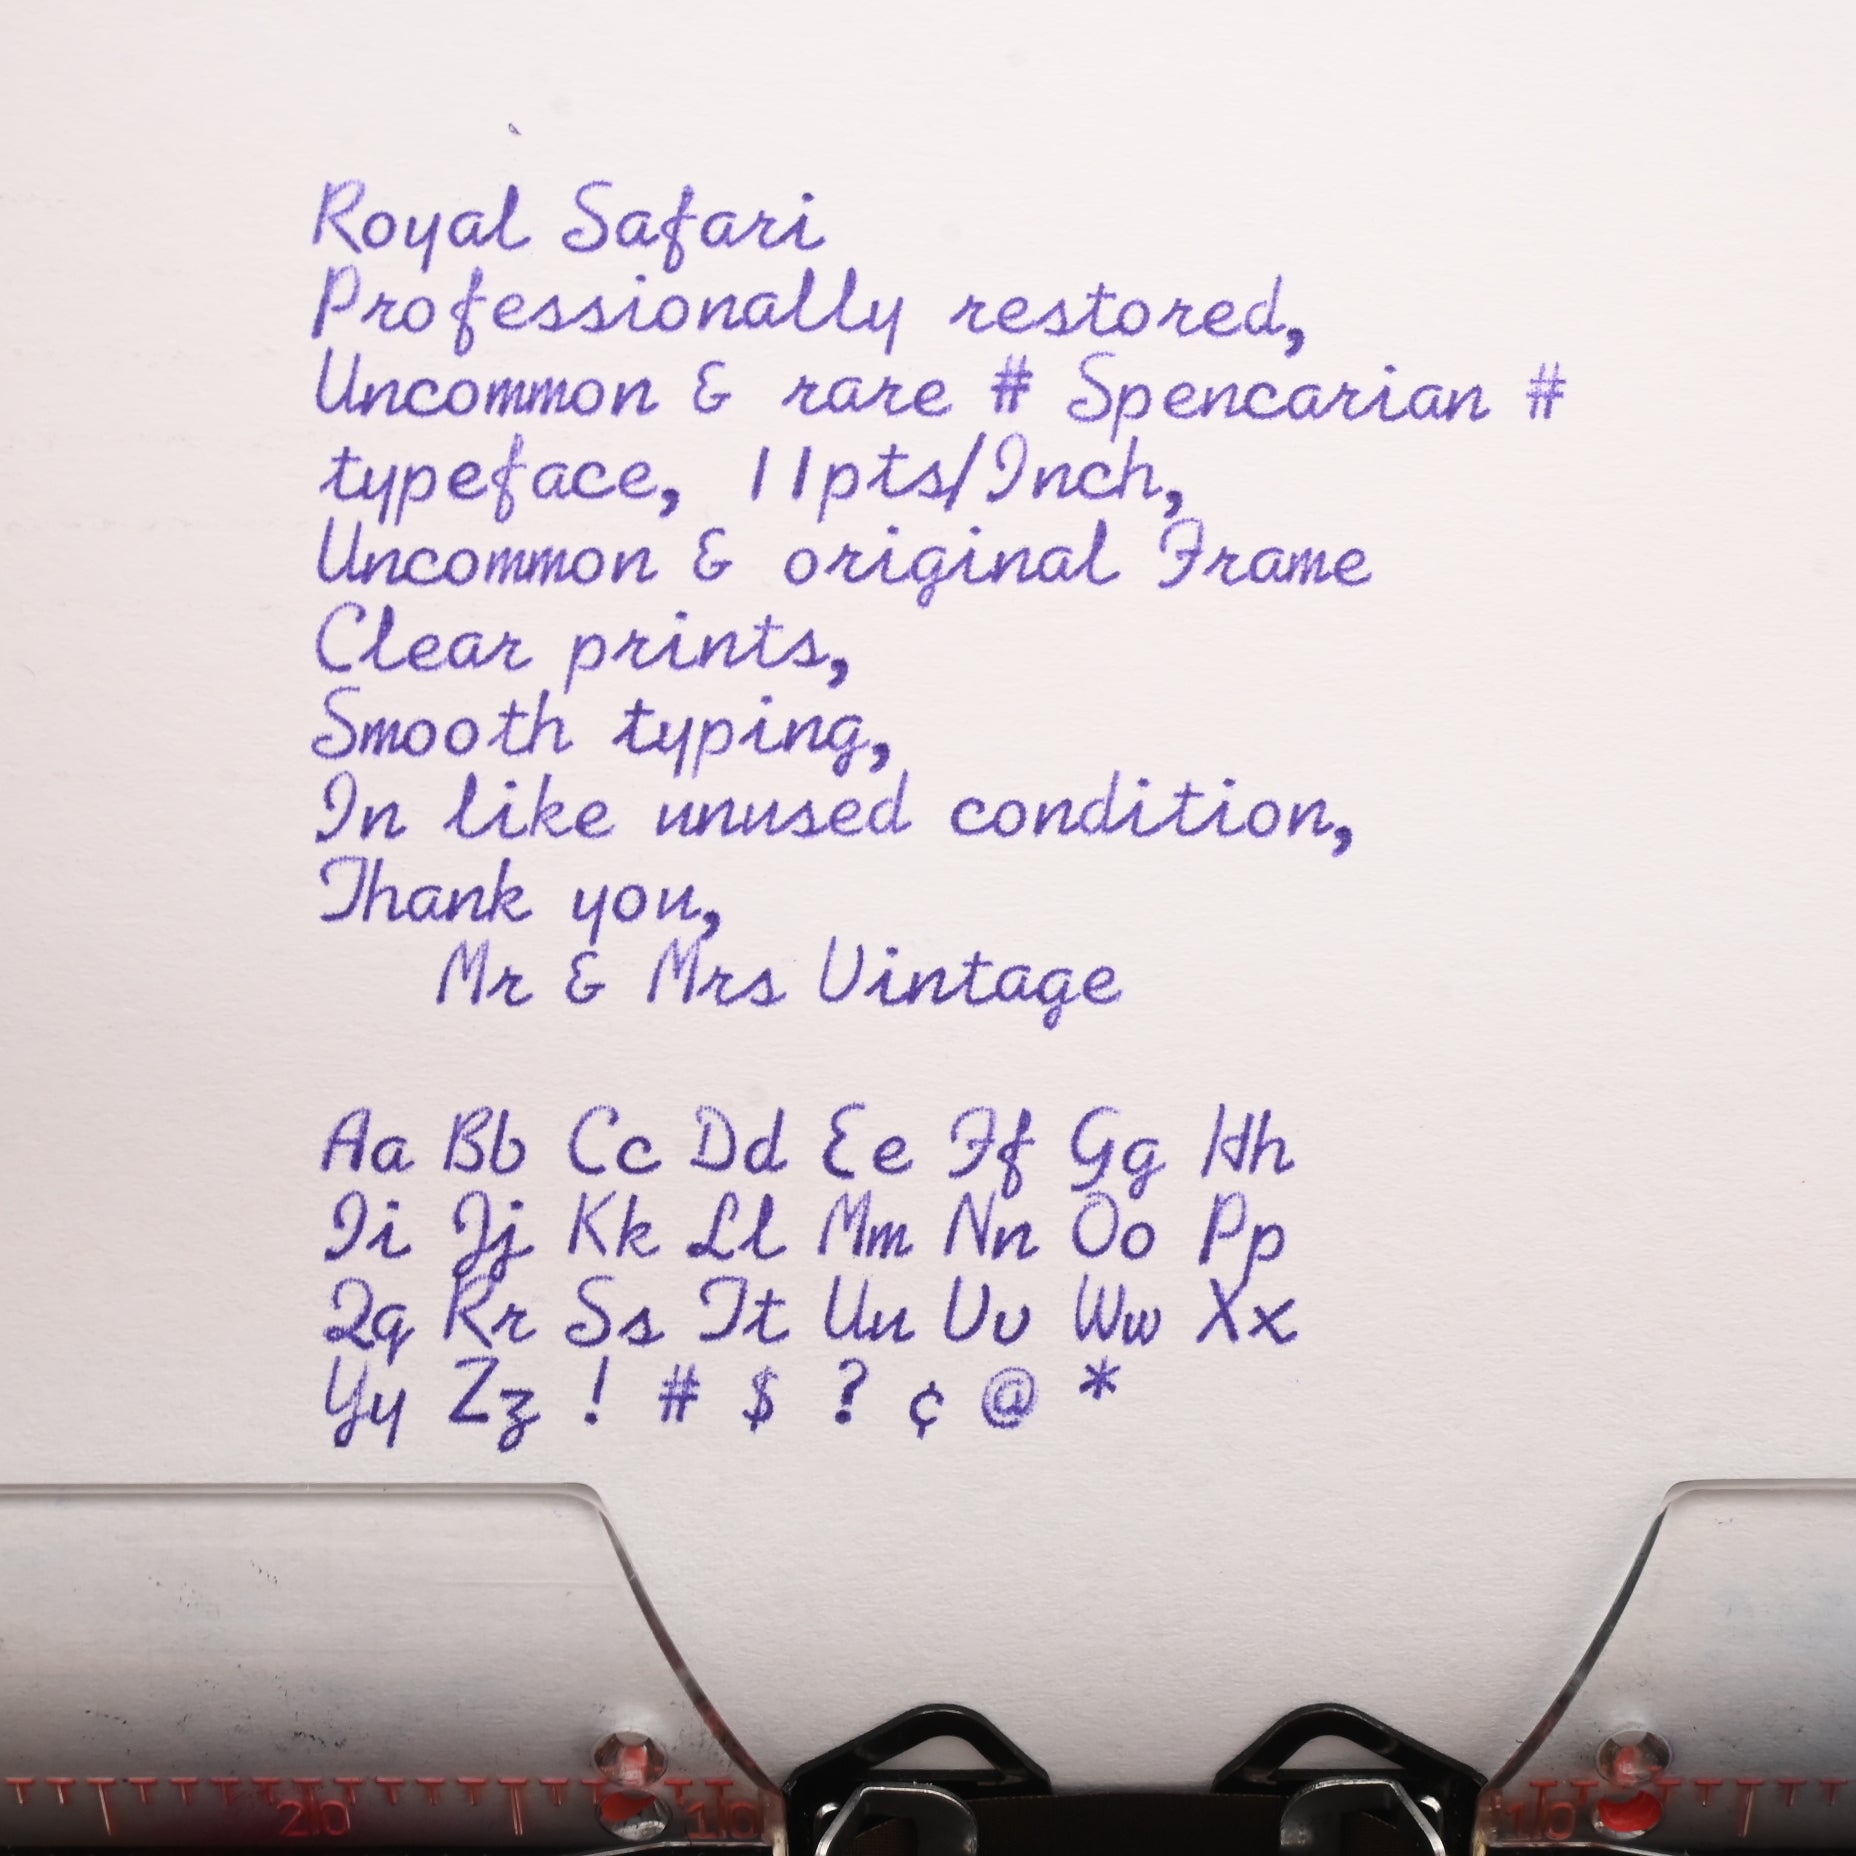 Royal Safari
Professionally restored,
Uncommon & rare # Spencarian #
typeface, 11pts/Inch,
Uncommon & original Frame
Clear prints,
Smooth typing,
In like unused condition,
Thank you,
Mr & Mrs Vintage
Aa Bb Cc Dd Ee Ff Gg Hh
Ii Jj Kk Ll Mm Nn Oo Pp
Qq Rr Ss Tt Uu Vv Ww Xx
Yy Zz ! # $ ? ¢ @ *
20 10 10